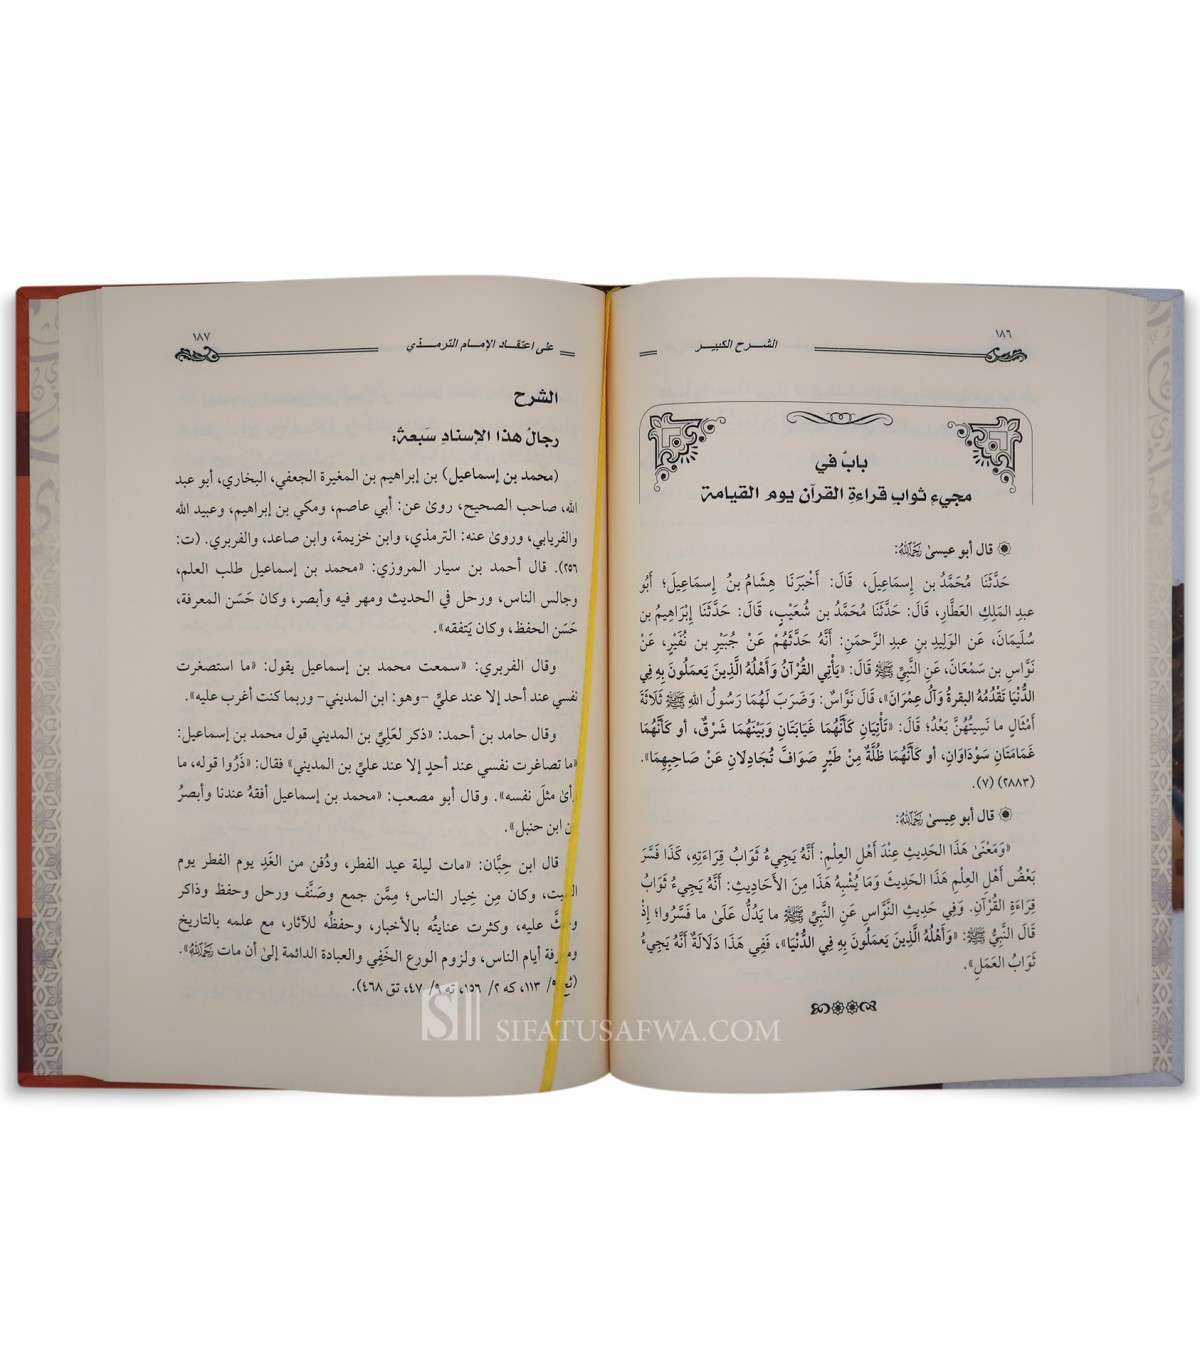 ١٨٦
الشرح الكبير
باب في
مجيء ثواب قراءة القرآن يوم القيامة
قال أبو عيسى رَحِمَهُ اللَّهُ:
حَدَّثَنَا مُحَمَّدُ بن إِسمَاعِيلَ، قَالَ: أَخْبَرَنَا هِشَامُ بنُ إِسمَاعِيلَ؛ أَبُو
عبدِ المَلِكِ العَطَّارِ، قَالَ: حَدَّثَنَا مُحَمَّدُ بن شُعَيْبٍ، قَالَ: حَدَّثَنَا إِبْرَاهِيمُ بن
سُلَيمَانَ، عَن الوَلِيدِ بن عبدِ الرَّحمَنِ: أَنَّهُ حَدَّثَهُمْ عَنْ جُبَيْرِ بن نُفَيْرٍ، عَنْ
نَوَّاسِ بن سَمْعَانَ، عَنِ النَّبِيِّ ﷺ قَالَ: «يَأْتِي القُرْآنُ وَأَهْلُهُ الَّذِينَ يَعمَلُونَ بِهِ فِي
الدُّنْيَا تَقْدُمُهُ البقرةُ وَآلُ عِمْرَانَ»، قَالَ نَوَّاسٌ: وَضَرَبَ لَهُمَا رَسُولُ اللهِ ﷺ ثَلَاثَةَ
أَمْثَالٍ ما نَسِيتُهُنَّ بَعْدُ؛ قَالَ: «تَأْتِيَانِ كَأَنَّهُمَا غَيَابَتَانِ وَبَيْنَهُمَا شَرْقٌ، أو كَأَنَّهُمَا
غَمَامَتَانِ سَوْدَاوَانِ، أو كَأَنَّهُمَا ظُلَّةٌ مِنْ طَيْرٍ صَوَافَّ تُجَادِلَانِ عَنْ صَاحِبِهِمَا».
(٢٨٨٣) (٧).
قال أبو عِيسى رَحِمَهُ اللَّهُ:
«وَمَعْنَى هَذَا الحَدِيثِ عِنْدَ أَهْلِ العِلْمِ: أَنَّهُ يَجِيءُ ثَوَابُ قِرَاءَتِهِ، كَذَا فَسَّرَ
بَعْضُ أَهْلِ العِلْمِ هَذَا الحَدِيثَ وَمَا يُشْبِهُ هَذَا مِنَ الأَحَادِيثِ: أَنَّهُ يَجِيءُ ثَوَابُ
قِرَاءَةِ القُرْآنِ. وَفِي حَدِيثِ النَّوَّاسِ عَنِ النَّبِيِّ ﷺ ما يَدُلُّ عَلَى ما فَسَّرُوا؛ إِذْ
قَالَ النَّبِيُّ ﷺ: «وَأَهْلُهُ الَّذِينَ يَعمَلُونَ بِهِ فِي الدُّنْيَا»، فَفِي هَذَا دَلَالَةٌ أَنَّهُ يَجِيءُ
ثَوَابُ العَمَلِ».
على اعتقاد الإمام الترمذي
١٨٧
الشرح
رجال هذا الإسناد سبعة:
(محمد بن إسماعيل) بن إبراهيم بن المغيرة الجعفي، البخاري، أبو عبد
الله، صاحب الصحيح، روى عن: أبي عاصم، ومكي بن إبراهيم، وعبيد الله
والفريابي، وروى عنه: الترمذي، وابن خزيمة، وابن صاعد، والفربري. (ت:
٢٥٦). قال أحمد بن سيار المروزي: «محمد بن إسماعيل طلب العلم،
وجالس الناس، ورحل في الحديث ومهر فيه وأبصر، وكان حَسَن المعرفة،
حَسَن الحفظ، وكان يَتفقه».
وقال الفربري: «سمعت محمد بن إسماعيل يقول: «ما استصغرت
نفسي عند أحد إلا عند عليٍّ -وهو: ابن المديني- وربما كنت أغرب عليه».
وقال حامد بن أحمد: «ذكر لعَلِيِّ بن المديني قول محمد بن إسماعيل:
«ما تصاغرت نفسي عند أحدٍ إلا عند عليِّ بن المديني» فقال: «ذَرُوا قوله، ما
رأى مثلَ نفسه». وقال أبو مصعب: «محمد بن إسماعيل أفقهُ عندنا وأبصرُ
من ابن حنبل».
قال ابن حِبَّان: «مات ليلة عيد الفطر، ودُفن من الغَدِ يوم الفطر يوم
السبت، وكان مِن خِيار الناس؛ مِمَّن جمع وصَنَّف ورحل وحفظ وذاكر
وحثَّ عليه، وكثرت عنايتُه بالأخبار، وحفظُه للآثار، مع علمه بالتاريخ
ومعرفة أيام الناس، ولزوم الورع الخَفِي والعبادة الدائمة إلى أن مات رَحِمَهُ اللَّهُ».
(ثع ٩/ ١١٣، كه ٢/ ١٥٦، ته ٩/ ٤٧، تق ٤٦٨).
SIFATUSAFWA.COM